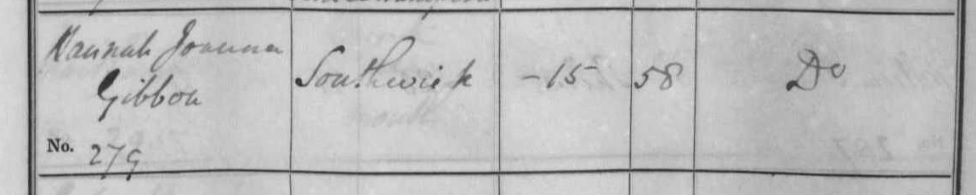 Hannah Joanna
Gibbon
Southwick
- 15
58
Do
No. 279